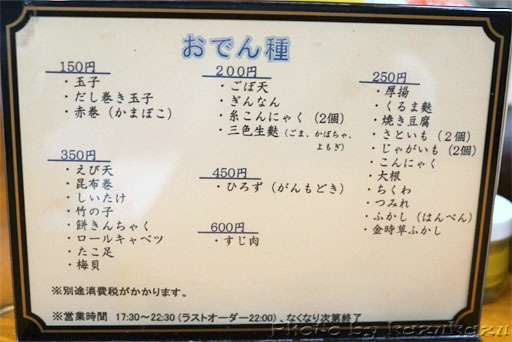 おでん種
150円
・玉子
・だし巻き玉子
・赤巻（かまぼこ）
200円
・ごぼ天
・ぎんなん
・糸こんにゃく（2個）
・三色生麩（ごま、かぼちゃ、
よもぎ）
250円
・厚揚
・くるま麩
・焼き豆腐
・さといも（2個）
・じゃがいも（2個）
・こんにゃく
・大根
・ちくわ
・つみれ
・ふかし（はんぺん）
・金時草ふかし
350円
・えび天
・昆布巻
・しいたけ
・竹の子
・餅きんちゃく
・ロールキャベツ
・たこ足
・梅貝
450円
・ひろず（がんもどき）
600円
・すじ肉
※別途消費税がかかります。
※営業時間 17:30～22:30（ラストオーダー22:00）、なくなり次第終了
Photo by kazukazu